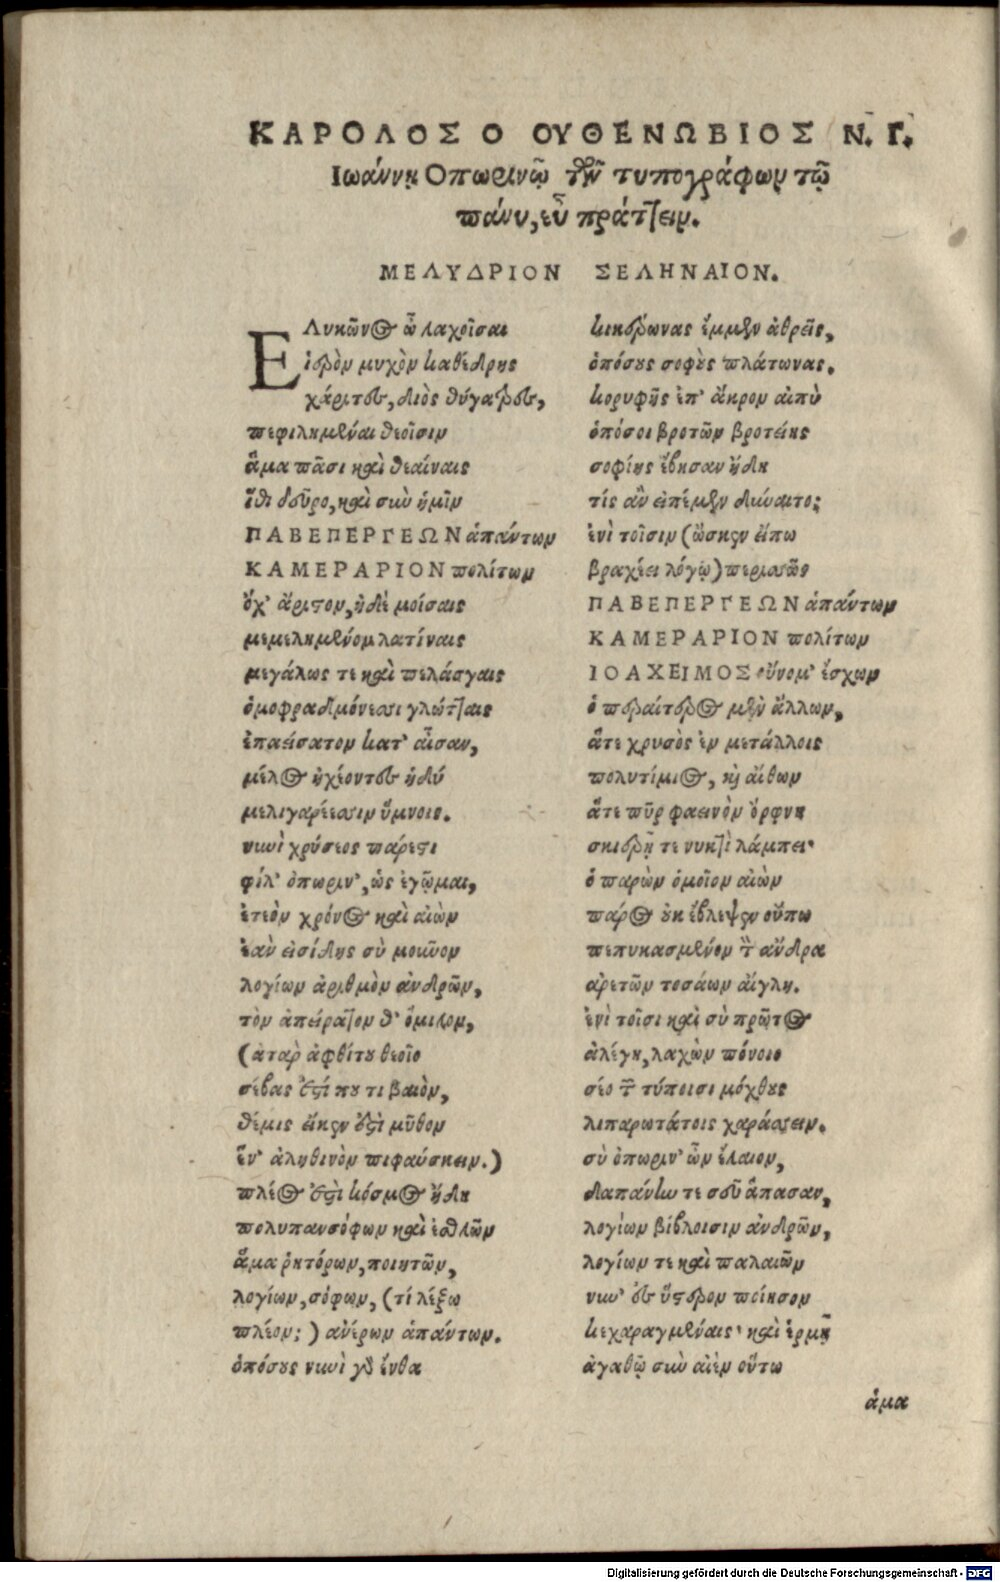 ΚΑΡΟΛΟΣ Ο ΟΥΘΕΝΩΒΙΟΣ Ν. Γ.
Ιωάννῃ Οπωρινῷ τῶν τυπογράφων τῷ
πάνυ, εὖ πράττειν.
ΜΕΛΥΔΡΙΟΝ ΣΕΛΗΝΑΙΟΝ.
ΕΛυκῶνος ὦ λαχοῖσαι
ἱερὸν μυχὸν καθέδρης
χάριτες, διὸς θύγατρες,
πεφιλημέναι θεοῖσιν
ἅμα πᾶσι καὶ θεαίναις
ἴθι δεῦρο, καὶ σὺν ἡμῖν
ΠΑΒΕΠΕΡΓΕΩΝ ἁπάντων
ΚΑΜΕΡΑΡΙΟΝ πολίτων
ὄχ' ἄριστον, ἠδὲ μοίσαις
μεμελημένον λατίναις
μεγάλως τε καὶ πελάσγαις
ὁμοφραδμόνεσσι γλώτταις
ἐπαείσατον κατ' αἶσαν,
μέλος ἠχέοντες ἡδύ
μελιγαρύεσσιν ὕμνοις.
νυνὶ χρύσεος πάρεστι
φίλ' ὀπωριν', ὡς ἐγᾦμαι,
ἐτεὸν χρόνος καὶ αἰὼν
ἐὰν εἰσίδης σὺ μοῦνον
λογίων ἀριθμὸν ἀνδρῶν,
τὸν ἀπείρατον θ' ὅμιλον,
(ἀτὰρ ἀφθίτου θεοῖο
σέβας ἐστί που τι βαιὸν,
θέμις εἴκεν ἐστὶ μῦθον
ἕν' ἀληθινὸν πιφαύσκειν.)
πλέος ἐστὶ κόσμος ἤδη
πολυπανσόφων καὶ ἐσθλῶν
ἅμα ῥητόρων, ποιητῶν,
λογίων, σόφων, (τί λέξω
πλέον;) ἀνέρων ἁπάντων.
ὁπόσους νυνὶ γὰρ ἔνθα
κικερωνας ἔμμεν ἀθρεῖς,
ὁπόσους σοφοὺς πλάτωνας.
κορυφῆς ἐπ' ἄκρον αἰπὺ
ὁπόσοι βροτῶν βροτείης
σοφίης ἔβησαν ἤδη
τίς ἂν εἰπέμεν δύναιτο;
ἐνὶ τοῖσιν (ὥσκεν εἴπω
βραχέει λόγῳ) περισσῶς
ΠΑΒΕΠΕΡΓΕΩΝ ἁπάντων
ΚΑΜΕΡΑΡΙΟΝ πολίτων
ΙΟΑΧΕΙΜΟΣ οὔνομ' ἔσχων
ὁ περαίτερος μὲν ἄλλων,
ἅτε χρυσὸς ἐν μετάλλοις
πολυτίμιος, καὶ αἴθων
ἅτε πῦρ φαεινὸν ὄρφνη
σκιερῇ τε νυκτὶ λάμπει·
ὁ παρὼν ὁμοῖον αἰὼν
πάρος οὐκ ἔβλεψεν οὔπω
πεπυκασμένον τὸν ἄνδρα
ἀρετῶν τοσάων αἴγλῃ.
ἐνὶ τοῖσι καὶ σὺ πρῶτος
ἀλέγῃ, λαχὼν πόνοιο
σέο τὸν τύποισι μόχθους
λιπαρωτάτοις χαράσσειν.
σὺ ὀπωριν' ὧν ἔλαιον,
δαπάνην τε σεῦ ἅπασαν,
λογίων βίβλοισιν ἀνδρῶν,
λογίων τε καὶ παλαιῶν
νυν' ἐς ὕστερον ποίησον
κεχαραγμέναις· καὶ ἑρμῇ
ἀγαθῷ σὺν αἰὲν οὕτω
ἅμα
Digitalisierung gefördert durch die Deutsche Forschungsgemeinschaft - DFG